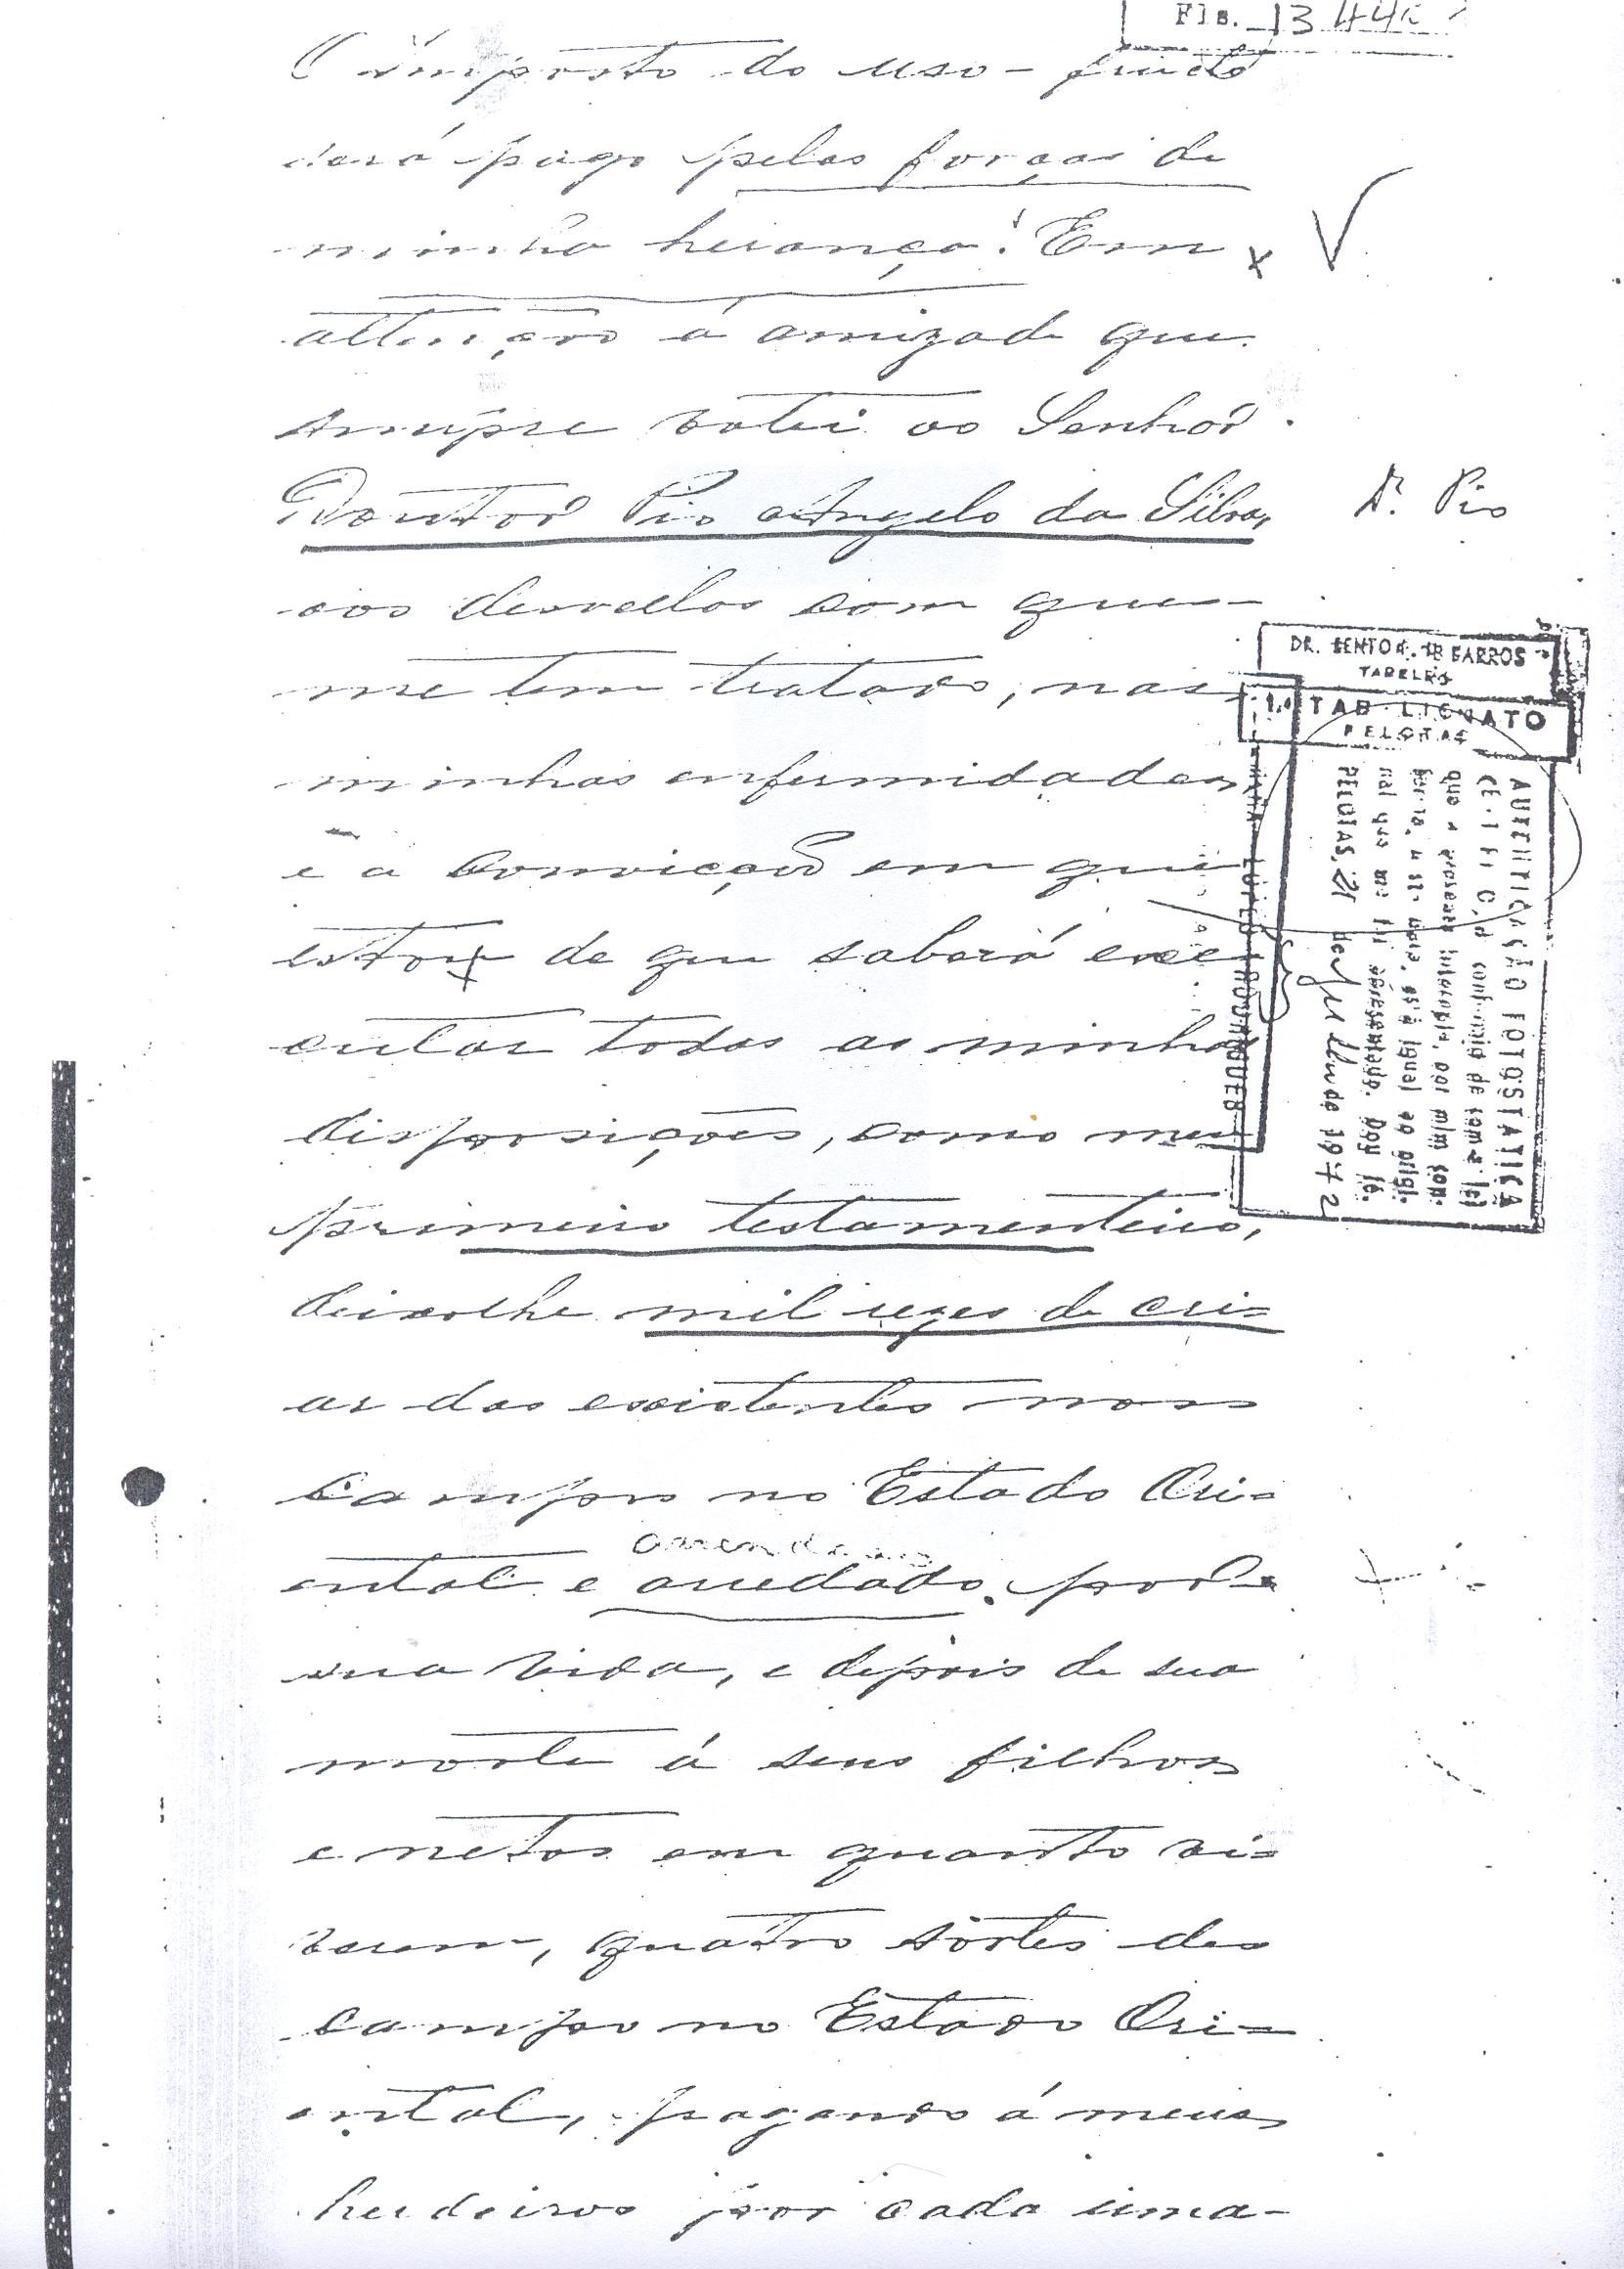 Fls. 1344
O imposto do uso-fructo
será pago pelas forças de
minha herança. Em
attenção á amizade que
sempre votei ao Senhor
Doutor Pio Angelo da Silva,
Dr. Pio
aos desvellos com que
me tem tratado, nas
minhas enfermidades,
e a convicção em que
estou de que saberá exe
cutar todas as minhas
disposições, como meu
primeiro testamenteiro,
deixolhe mil rezes de cri=
ar das existentes nos
campos no Estado Ori=
arrendados
ental e arredado por
sua vida, e depois de sua
morte á seus filhos
e netos em quanto vi=
verem, quatro sortes de
campo no Estado Ori=
ental, pagando á meus
herdeiros por cada uma
DR. BENTO DE BARROS
TABELIÃO
1.º TABELIONATO
PELOTAS
AUTENTICAÇÃO FOTOSTATICA
CERTIFICO, a conformidade
que a presente fotocopia, por mim con-
ferida, a seu verso, está igual ao origi-
nal que me foi apresentado. Dou fé.
PELOTAS, 21 de Julho de 1972
RODRIGUES